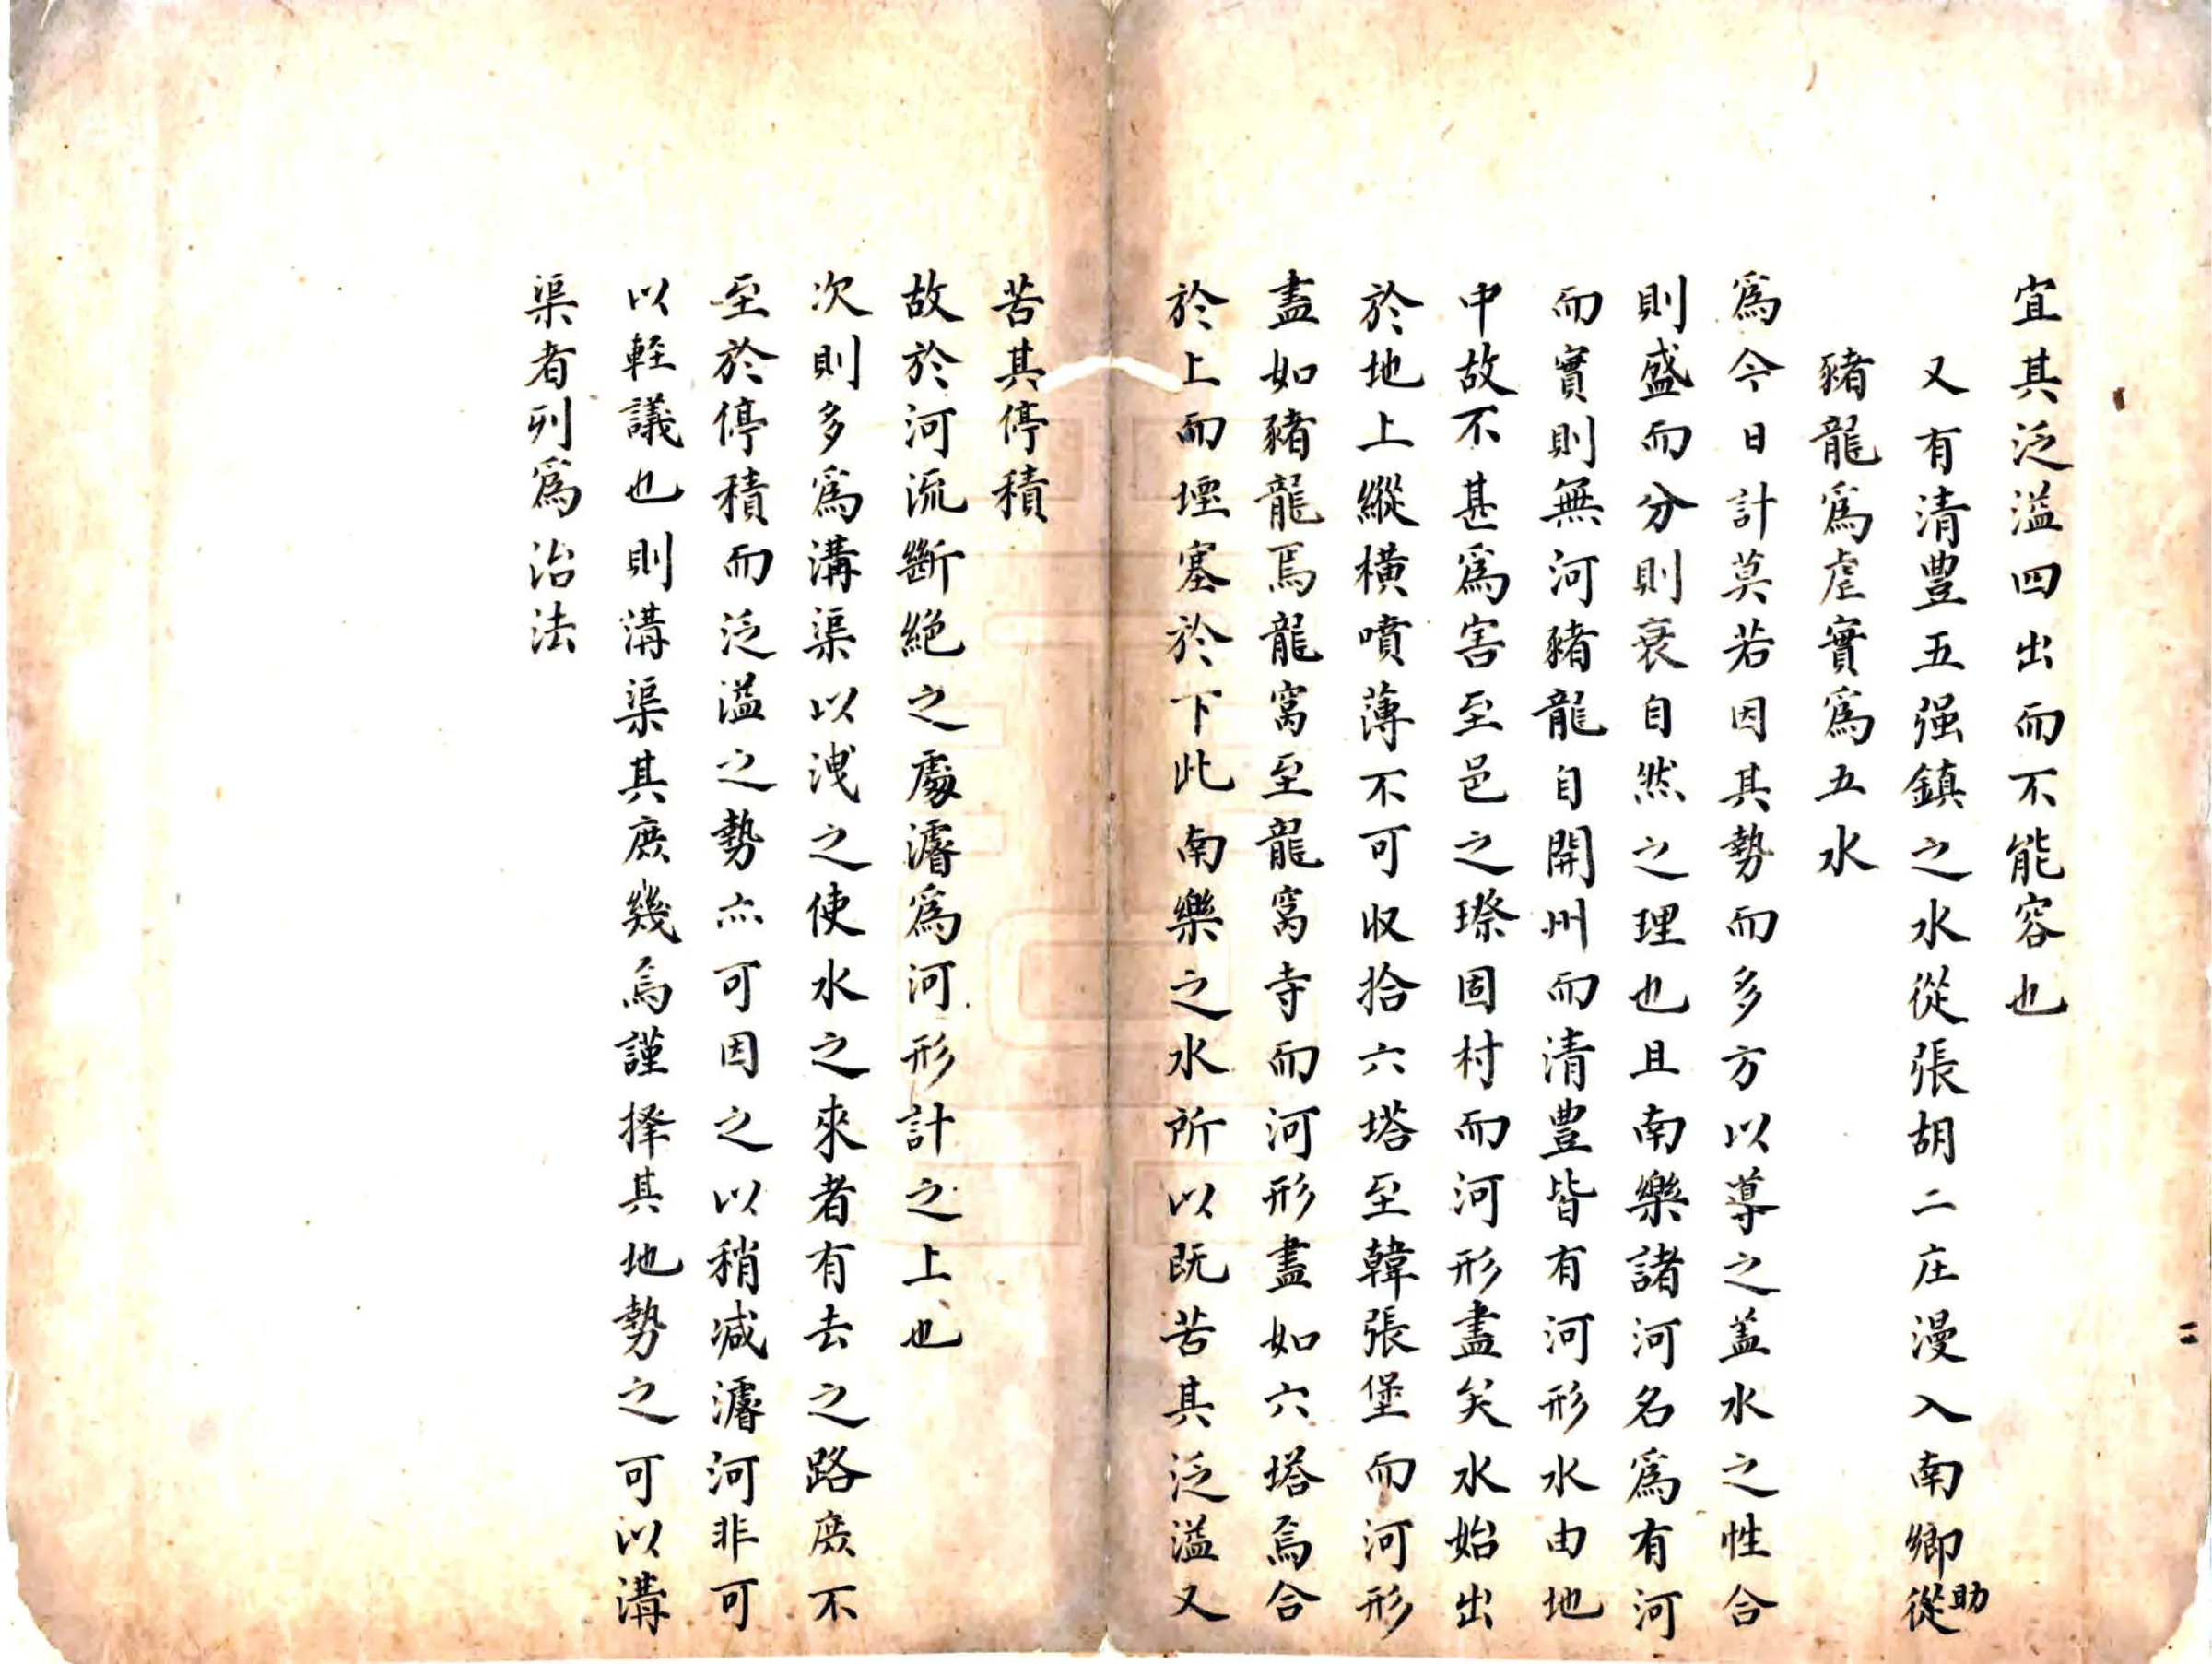 宜其泛溢四出而不能容也
又有清豊五强鎮之水從張胡二庄漫入南鄉從助
豬龍爲虐實爲五水
爲今日計莫若因其勢而多方以導之盖水之性合
則盛而分則衰自然之理也且南樂諸河名爲有河
而實則無河豬龍自開州而清豊皆有河形水由地
中故不甚爲害至邑之瑹固村而河形盡矣水始出
於地上縱橫噴薄不可收拾六塔至韓張堡而河形
盡如豬龍焉龍窩至龍窩寺而河形盡如六塔焉合
於上而堙塞於下此南樂之水所以既苦其泛溢又
苦其停積
故於河流斷絕之處濬爲河形計之上也
次則多爲溝渠以洩之使水之來者有去之路庻不
至於停積而泛溢之勢亦可因之以稍减濬河非可
以軽議也則溝渠其庻幾焉謹擇其地勢之可以溝
渠者列爲治法